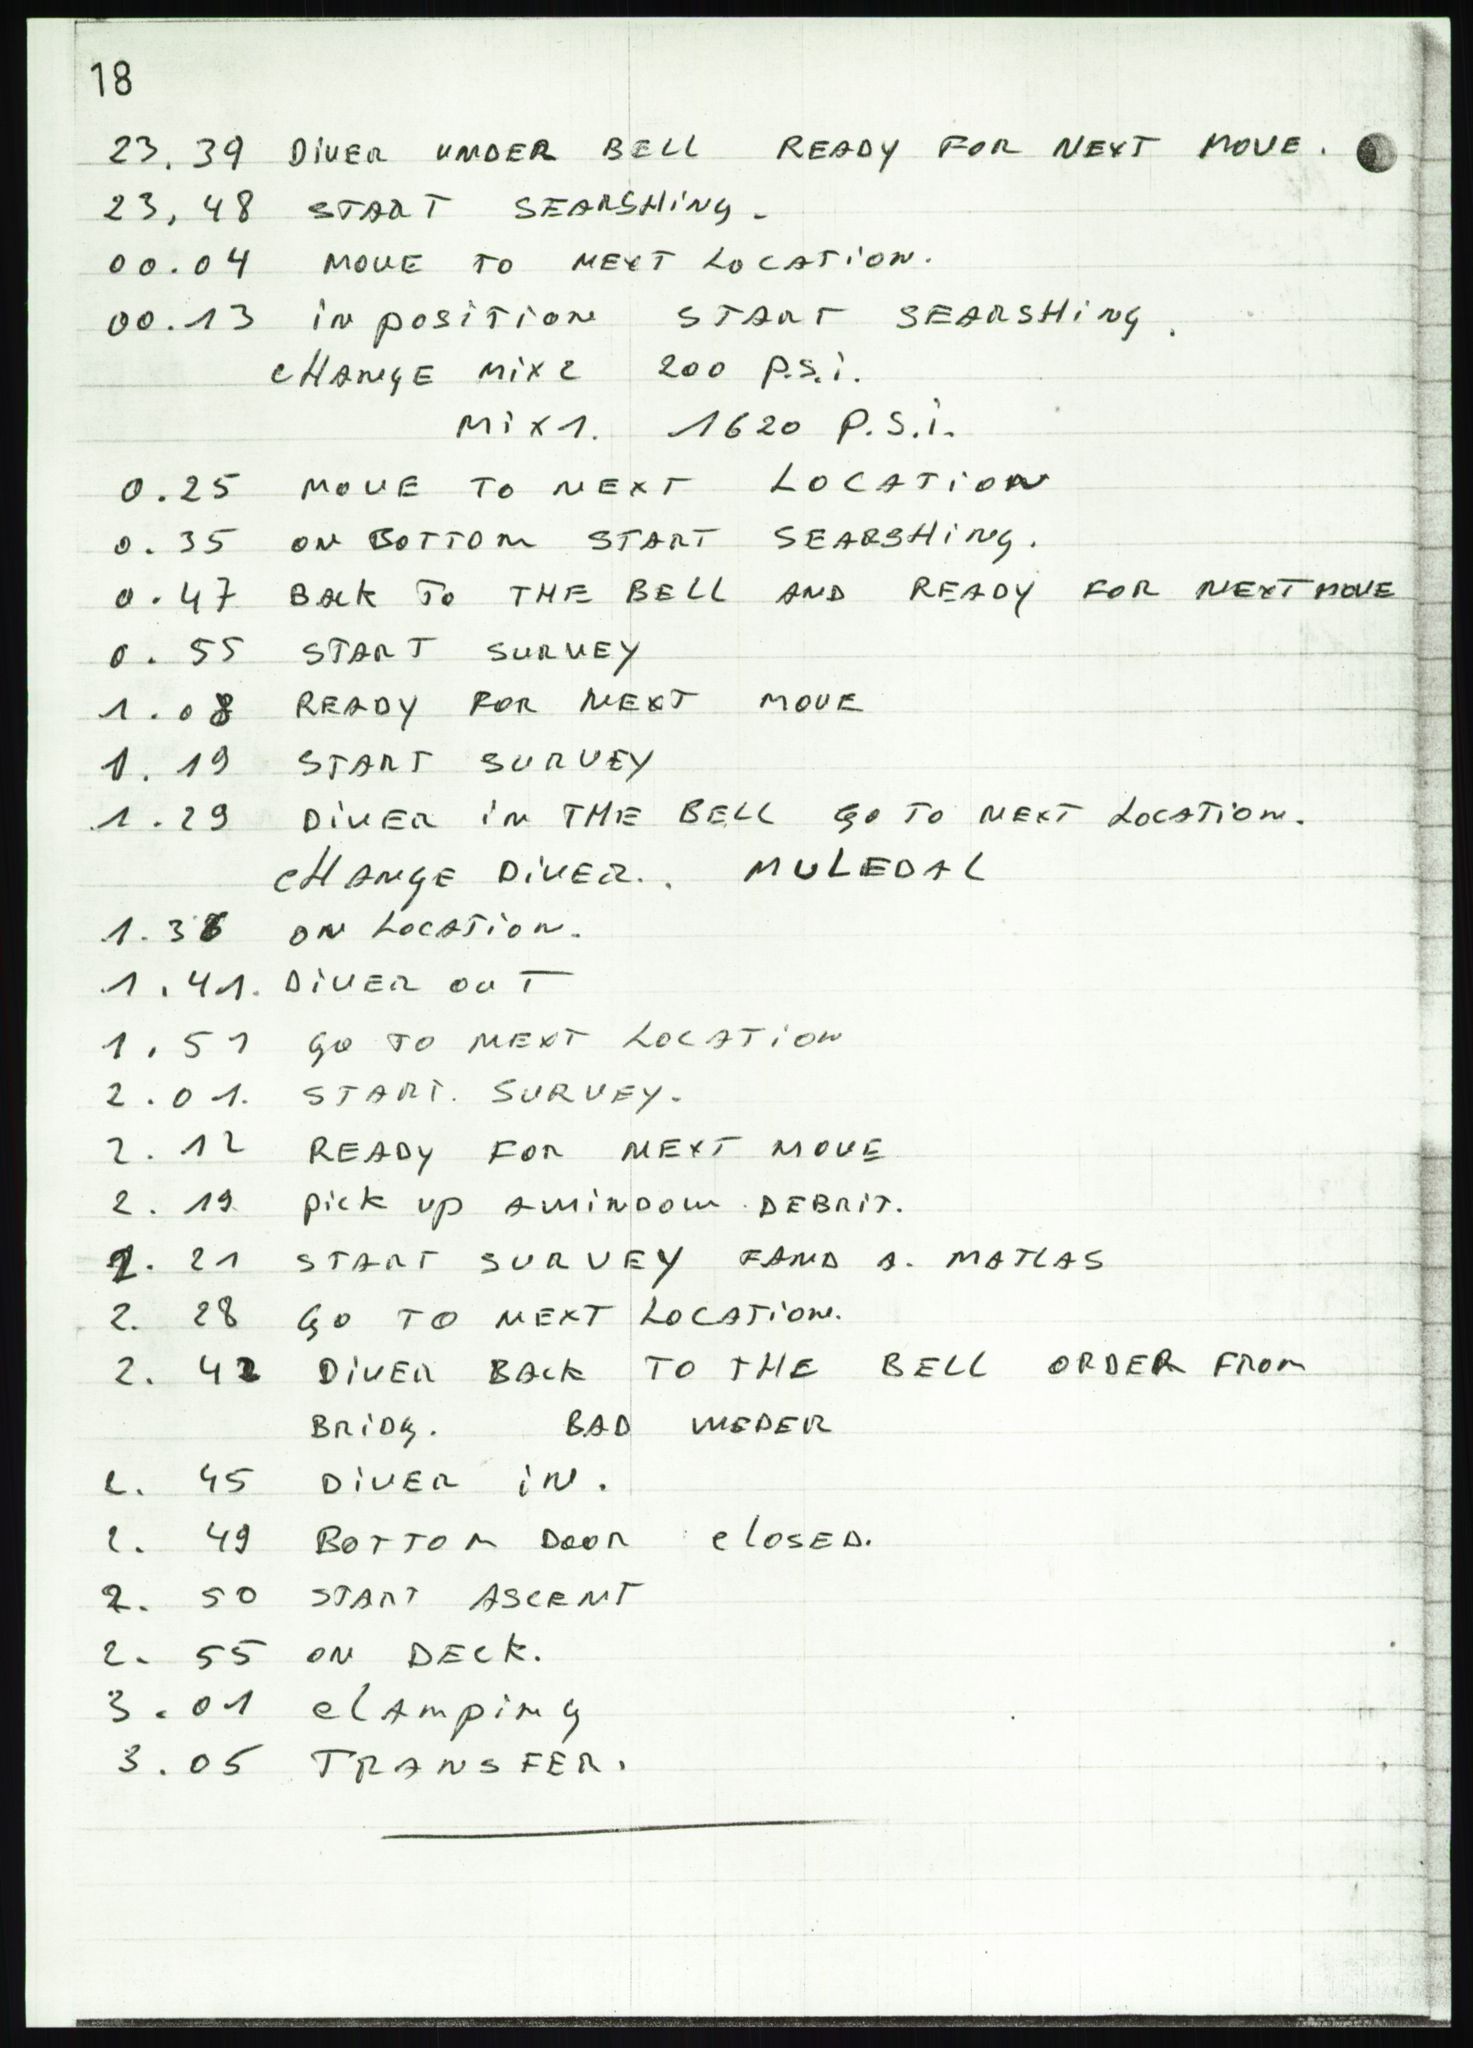 18
23.39 DIVER UNDER BELL READY FOR NEXT MOVE.
23,48 START SEARSHING.
00.04 MOVE TO NEXT LOCATION.
00.13 IN POSITION START SEARSHING.
CHANGE MIX 2 200 P.S.i.
MIX 1. 1620 P.S.i.
0.25 MOVE TO NEXT LOCATION
0.35 ON BOTTOM START SEARSHING.
0.47 BACK TO THE BELL AND READY FOR NEXT MOVE
0.55 START SURVEY
1.08 READY FOR NEXT MOVE
1.19 START SURVEY
1.29 DIVER IN THE BELL GO TO NEXT LOCATION.
CHANGE DIVER.. MULEDAL
1.3 ON LOCATION.
1.41. DIVER OUT
1.51 GO TO NEXT LOCATION
2.01. START. SURVEY.
2.12 READY FOR NEXT MOVE
2.19 PICK UP DEBRIT.
2.21 START SURVEY FAND A. MATLAS
2.28 GO TO NEXT LOCATION.
2.42 DIVER BACK TO THE BELL ORDER FROM
BRIDG. BAD WEDER
2.45 DIVER IN.
2.49 BOTTOM DOOR CLOSED.
2.50 START ASCENT
2.55 ON DECK.
3.01 CLAMPING
3.05 TRANSFER.